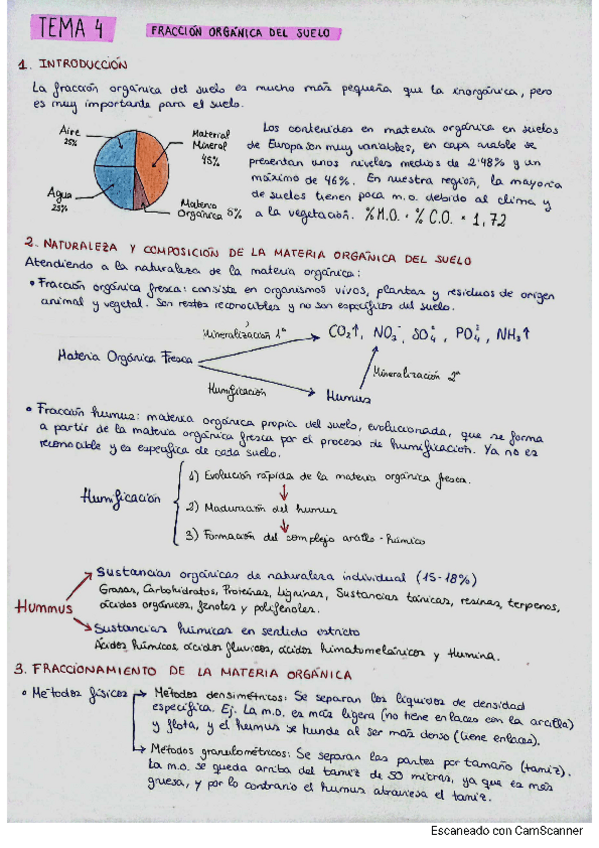 TEMA 4
FRACCIÓN ORGÁNICA DEL SUELO
1. INTRODUCCIÓN
La fracción orgánica del suelo es mucho más pequeña que la inorgánica, pero
es muy importante para el suelo.
Aire
25%
Material
Mineral
45%
Agua
25%
Materia
Orgánica 5%
Los contenidos en materia orgánica en suelos
de Europa son muy variables, en capa arable se
presentan unos niveles medios de 2'48% y un
máximo de 46%. En nuestra región, la mayoría
de suelos tienen poca m.o. debido al clima y
a la vegetación. % M.O. = % C.O. * 1,72
2. NATURALEZA Y COMPOSICIÓN DE LA MATERIA ORGÁNICA DEL SUELO
Atendiendo a la naturaleza de la materia orgánica:
• Fracción orgánica fresca: consiste en organismos vivos, plantas y residuos de origen
animal y vegetal. Son restos reconocibles y no son específicos del suelo.
Mineralización 1ª
CO₂↑, NO₃⁻, SO₄²⁻, PO₄³⁻, NH₃↑
Materia Orgánica Fresca
Mineralización 2ª
Humificación
Humus
• Fracción humus: materia orgánica propia del suelo, evolucionada, que se forma
a partir de la materia orgánica fresca por el proceso de humificación. Ya no es
reconocible y es específica de cada suelo.
Humificación
1) Evolución rápida de la materia orgánica fresca.
2) Maduración del humus
3) Formación del complejo arcillo-húmico
Hummus
Sustancias orgánicas de naturaleza individual (15-18%)
Grasas, Carbohidratos, Proteínas, Ligninas, Sustancias tánicas, resinas, terpenos,
ácidos orgánicos, fenoles y polifenoles.
Sustancias húmicas en sentido estricto
Ácidos húmicos, ácidos fluvicos, ácidos himatomelánicos y Humina.
3. FRACCIONAMIENTO DE LA MATERIA ORGÁNICA
• Métodos físicos
Métodos densimétricos: Se separan los líquidos de densidad
específica. Ej. La m.o. es más ligera (no tiene enlaces con la arcilla)
y flota, y el humus se hunde al ser más denso (tiene enlaces).
Métodos granulométricos: Se separan las partes por tamaño (tamiz).
La m.o. se queda arriba del tamiz de 50 micras, ya que es más
gruesa, y por lo contrario el humus atraviesa el tamiz.
Escaneado con CamScanner